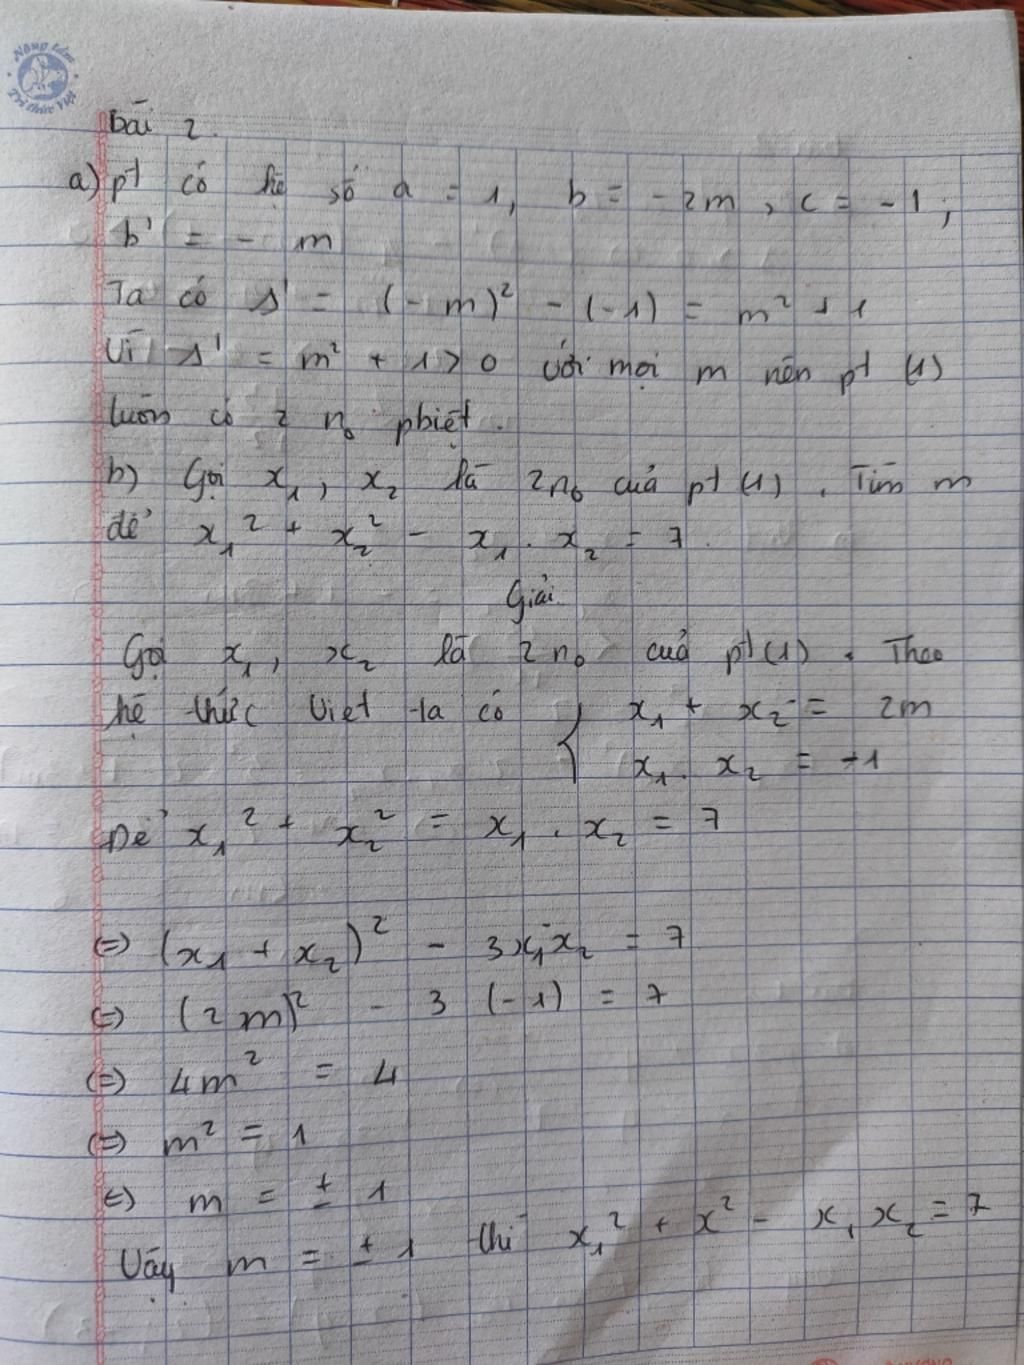 Nâng tầm
Tri thức Việt
bài 2.
a) pt có hệ số a = 1, b = - 2m, c = -1;
b' = - m
Ta có Δ' = (- m)² - (-1) = m² + 1
Vì Δ' = m² + 1 > 0 với mọi m nên pt (1)
luôn có 2 n₀ pbiệt.
b) Gọi x₁, x₂ là 2n₀ của pt (1). Tìm m
để x₁² + x₂² - x₁. x₂ = 7.
Giải.
Gọi x₁, x₂ là 2 n₀ của pt (1). Theo
hệ thức Viet ta có { x₁ + x₂ = 2m
x₁. x₂ = -1
Để x₁² + x₂² = x₁. x₂ = 7
(=) (x₁ + x₂)² - 3x₁x₂ = 7
(=) (2m)² - 3 (-1) = 7
(=) 4m² = 4
(=) m² = 1
(=) m = ± 1
Vậy m = ± 1 thì x₁² + x² - x₁ x₂ = 7